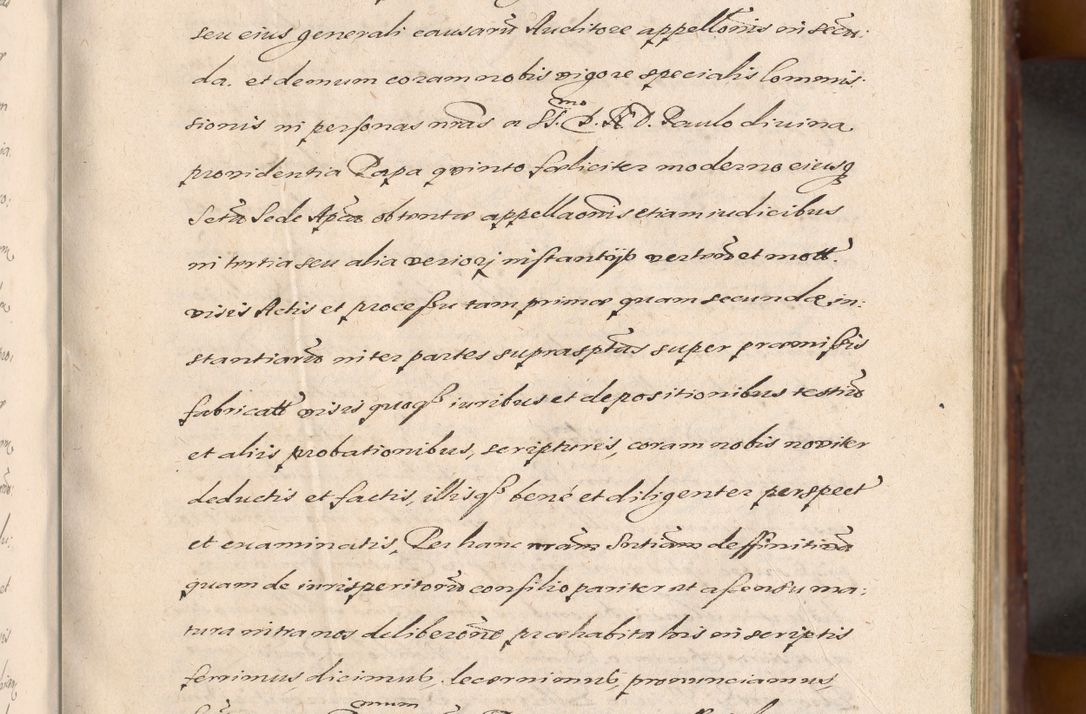 seu eius generali causarũ Auditore appellõnis in secũ:
da. et demum coram nobis vigore specialis Commis:
sionis in personas nr̃as a SS.mo D. N D. Paulo divina
providentia Papa quinto fœliciter moderno eiusq
Sctã Sede Apcã obtentæ appellaõnis etiam iudicibus
in tertia seu alia veriori instantijs vertẽ et mott.
visis Actis et processu tam primæ quam secundæ in:
stantiarũ inter partes suprasptãs super præmissis
fabricatt visis quoqꝫ iuribus et depositionibus testiũ
et aliis probationibus, scripturis, coram nobis noviter
deductis et factis, illisqꝫ bené et diligenter perspect
et examinatis, Per hanc nr̃am Sntiam deffinitivã
quam de iurisperitorũ consilio pariter ut assensu ma:
tura intra nos deliberõne præhabita his in scriptis
ferrimus, dicimus, decernimus, pronunciamus,